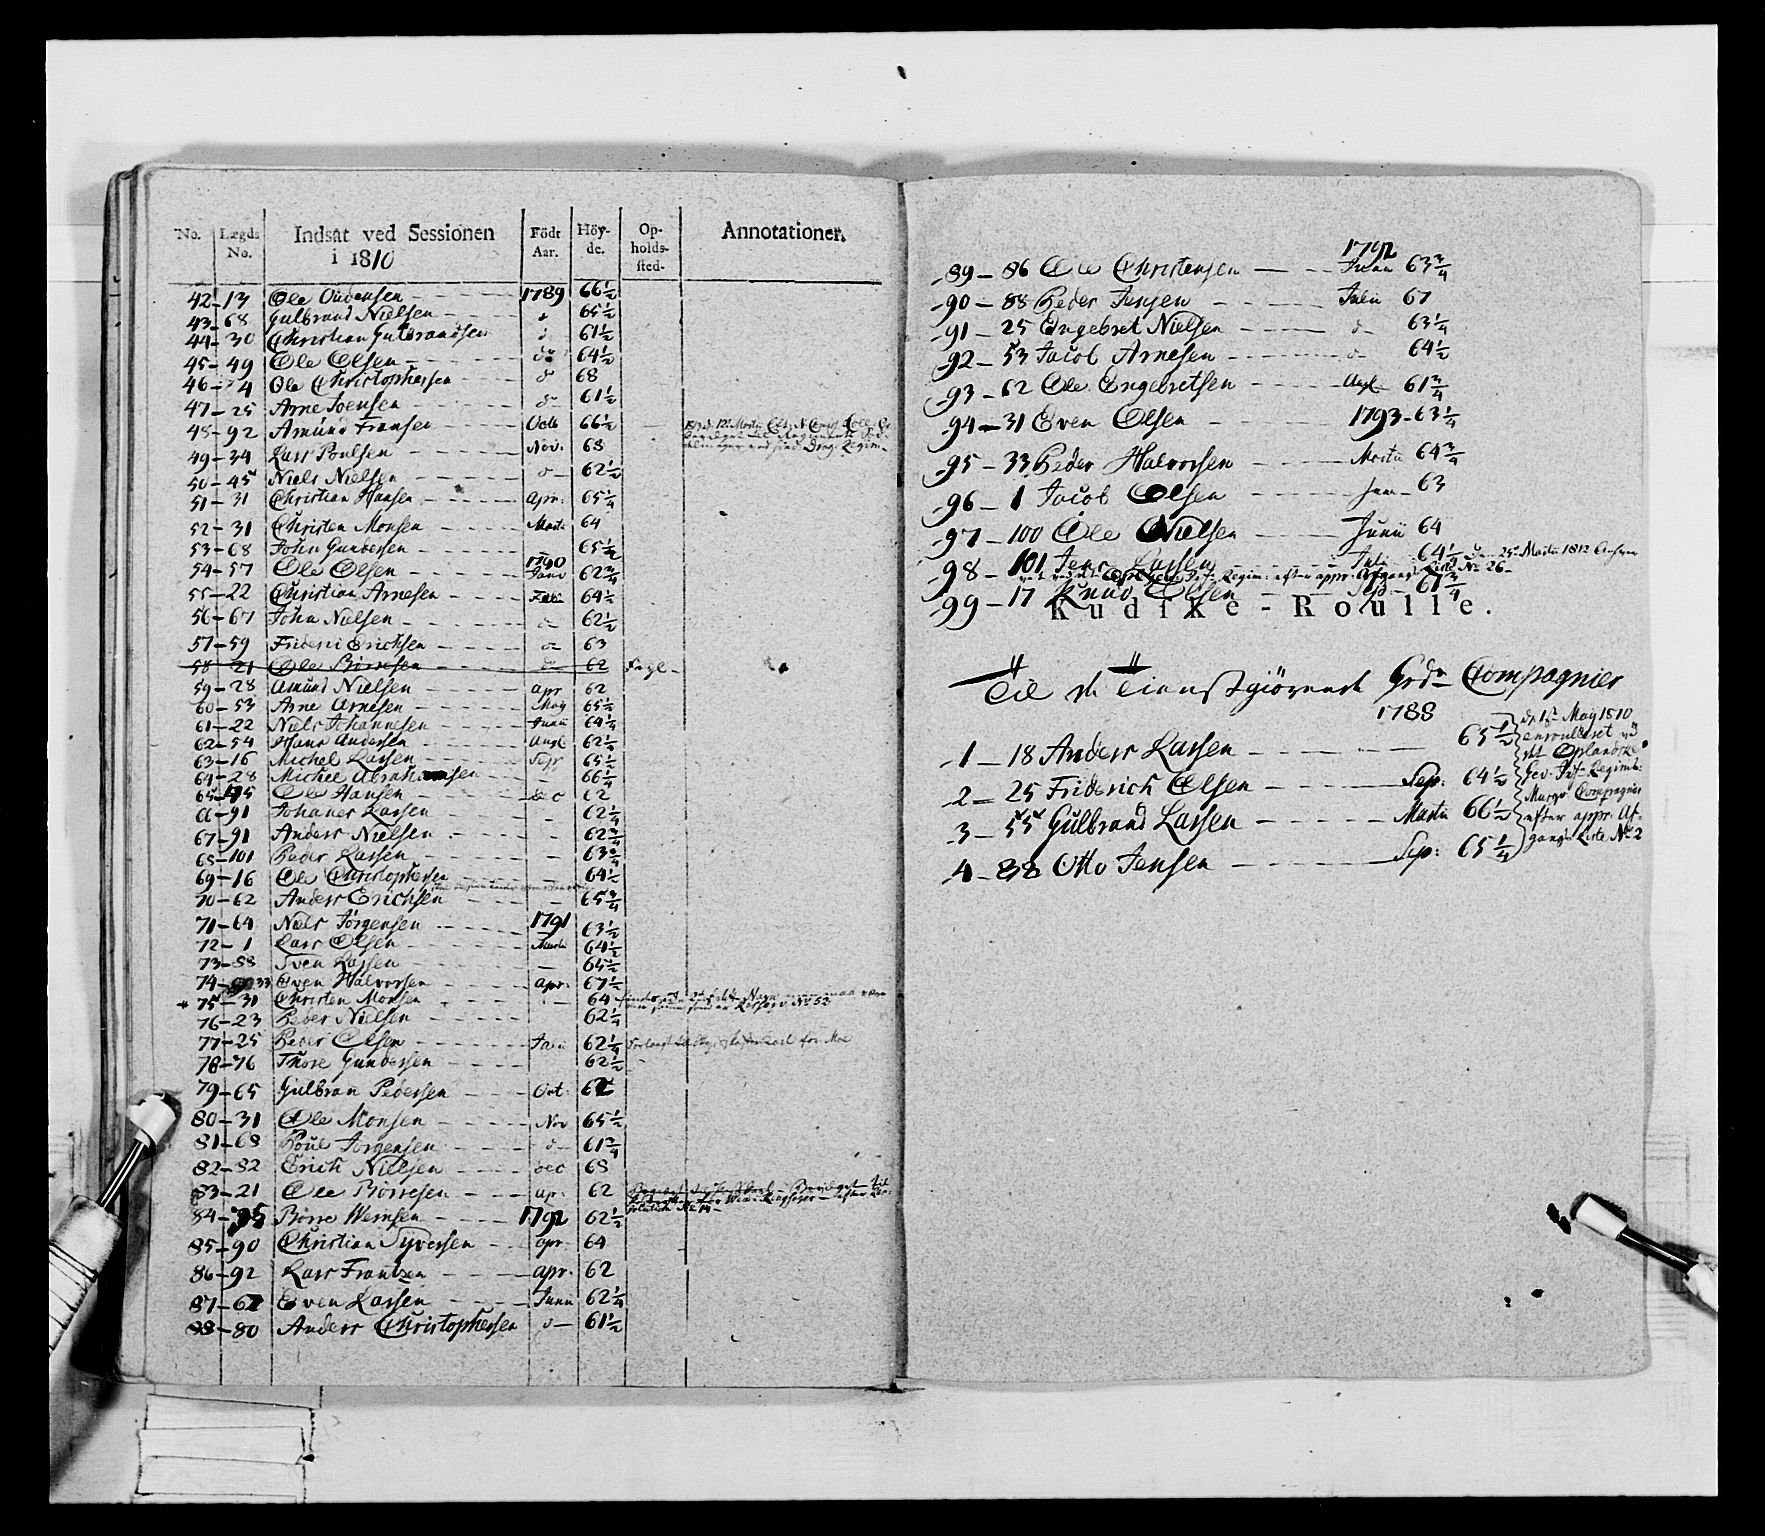 No. Lægds No. Indsat ved Sessionen i 1810 Födt Aar. Höyde. Opholdssted. Annotationer.
42-13 Ole Oudensen 1789 66½
43-68 Gulbrand Nielsen 65½
44-30 Christian Gulbrandsen d 61½
45-49 Ole Olsen do 64½
46-74 Ole Christophersen d 68
47-25 Arne Joensen do 61½
48-92 Amund Fransen Octb 66½
49-34 Lars Poulsen Nov. 68
50-45 Niels Nielsen d- 62½
51-31 Christian Hansen Apr. 65¼
52-31 Christen Monsen Marti 64
53-68 John Gundersen 65½
1790
54-57 Ole Olsen Janv 62¾
55-22 Christian Arnesen Febr 64½
56-67 John Nielsen d- 62½
57-59 Frideric Erichsen d- 63
58 21 Ole Börresen d- 62
59-28 Amund Nielsen Apr 62
60-53 Arne Arnesen May 65½
61-22 Niels Johannesen Junii 64¼
62-54 Hans Andersen Augt 62¼
63-16 Michel Larsen Sepr 65½
64-28 Michel Abrahamsen - 66¼
65-95 Ole Hansen dec 62
66-91 Johanes Larsen - 62¼
67-91 Anders Nielsen - 62¾
68-101 Peder Larsen - 63¾
69-16 Ole Christophersen - 64½
70-62 Anders Erichsen - 65¾
71-64 Niels Jörgensen 1791 63½
72-1 Lars Olsen Marti 64½
73-88 Sven Larsen - 65½
74- 33 Even Halvorsen Apr. 67½
75-31 Christen Monsen 64
76-23 Peder Nielsen 62¼
77-25 Peder Olsen Juli 62¼
78-76 Thore Gundersen 62½
79-65 Gulbran Pedersen Oct. 62
80-31 Ole Monsen Nov 65½
81-68 Poul Jörgensen d- 61¾
82-82 Erich Nielsen dec 68
83-21 Ole Börresen Ap. 62
84-95 Börre Wernsen 1792 62½
85-90 Christian Syversen Apr. 64
86-92 Lars Frantzen Apr. 62
87-62 Even Larsen Junii 62¼
88-80 Anders Christophersen d- 61½
1792
89-86 Ole Christensen Junii 63¾
90-88 Peder Jensen Julii 67
91-25 Engebret Nielsen d- 63¼
92-53 Jacob Arnesen d- 64½
93-62 Ole Engebretsen Augt 61¾
94-31 Even Olsen 1793-63¼
95-33 Peder Halvorsen Martii 64¾
96-1 Jacob Olsen Jun- 63
97-100 Ole Nielsen Junii 64
98-101 Jens Larsen Juli 64½ den 25de Martii 1812
efter appr. Afgangs Liste No 26-
99-17 Knud Olsen Sep- 61¾
Kudske-Roulle.
Til de Tienstgiörende Compagnier
1788
1-18 Anders Larsen 65½
2-25 Friderich Olsen Sep. 64½
3-55 Gulbrand Larsen Martii 66½
4-88 Otto Jensen Sep: 65¼
d: 1ste May 1810
enroulleret ved
det Oplandske
Gev. Inf. Regimt:
Compagnie
efter appr. Afgangs Liste No 2